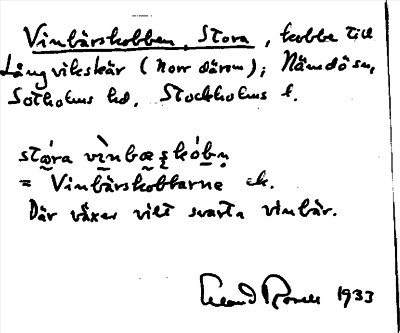 Vinbärskobben, Stora, kobbe till
Långvikskär (Norr därom); Nämdö sn,
Sotholms hd, Stockholms l.
stóra vìnbæʂkóbn̥
= Vinbärskobbarne ek.
Där växer vilt svarta vinbär.
1933